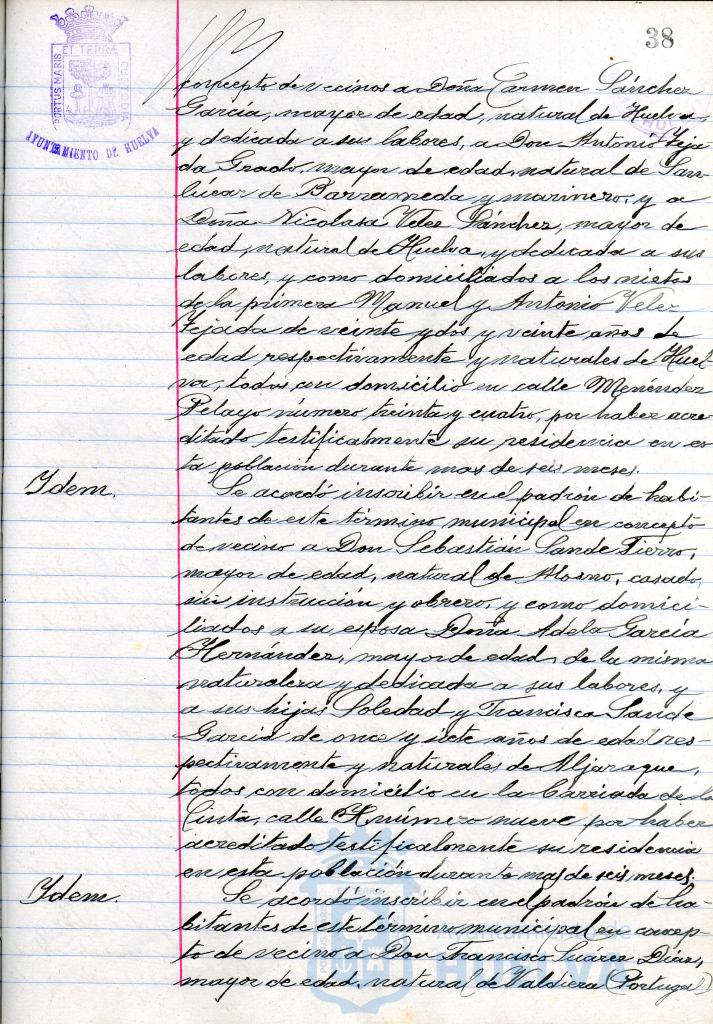 38
PORTUS MARIS ET TERRÆ CUSTODIA
AYUNTAMIENTO DE HUELVA
concepto de vecinos a Doña Carmen Sánchez
García, mayor de edad, natural de Huelva
y dedicada a sus labores, a Don Antonio Teja
da Grado, mayor de edad, natural de San
lúcar de Barrameda y marinero, y a
Doña Nicolasa Velez Sánchez, mayor de
edad, natural de Huelva, y dedicada a sus
labores, y como domiciliados a los nietos
de la primera Manuel y Antonio Velez
Tejada de veinte y dos y veinte años de
edad respectivamente y naturales de Huel
va, todos con domicilio en calle Menéndez
Pelayo número treinta y cuatro, por haber acre
ditado testificalmente su residencia en es
ta población durante mas de seis meses.
Ydem.
Se acordó inscribir en el padrón de habi-
tantes de este término municipal en concepto
de vecino a Don Sebastián Sande Fierro,
mayor de edad, natural de Alosno, casado,
sin instrucción y obrero, y como domici-
liados a su esposa Doña Adela García
Hernández, mayor de edad, de la misma
naturaleza y dedicada a sus labores, y
a sus hijas Soledad y Francisca Sande
García de once y siete años de edad res-
pectivamente y naturales de Aljaraque,
todos con domicilio en la Barriada de la
Cinta, calle X número nueve por haber
acreditado testificalmente su residencia
en esta población durante mas de seis meses.
Ydem.
Se acordó inscribir en el padrón de ha-
bitantes de este término municipal en concep-
to de vecino a Don Francisco Suarez Diaz,
mayor de edad, natural de Valdiera (Portugal)
Ayuntamiento de
HUELVA